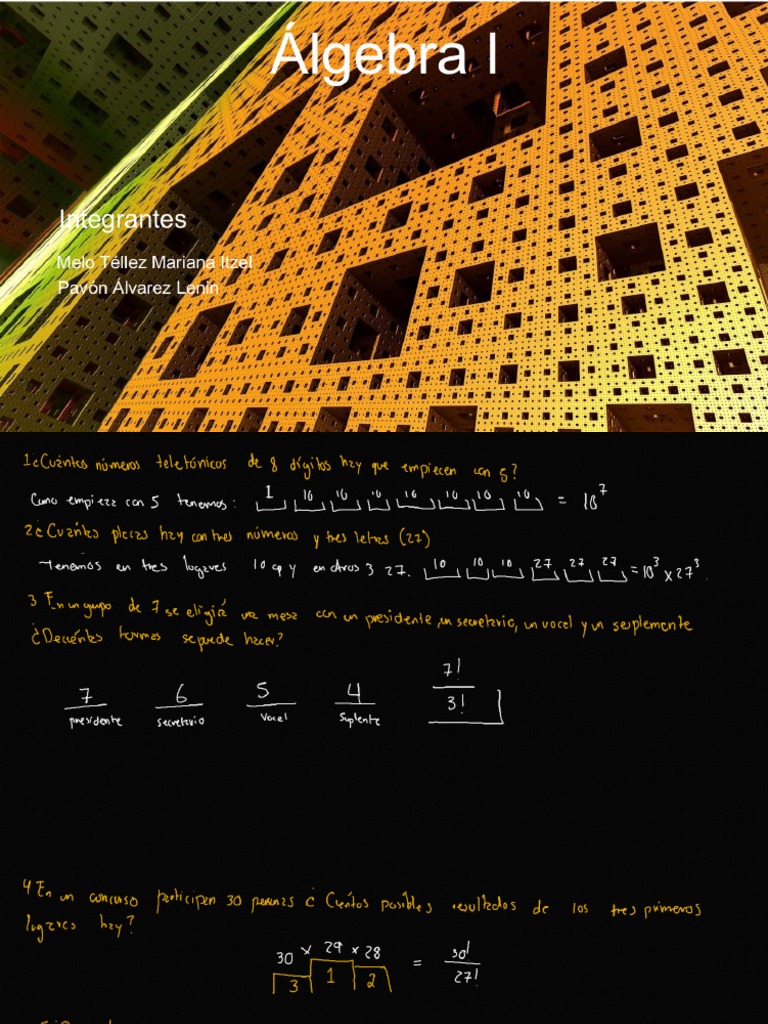 Álgebra I
Integrantes
Melo Téllez Mariana Itzel
Pavón Álvarez Lenin
1 ¿Cuántos números telefónicos de 8 dígitos hay que empiecen con 5?
Como empieza con 5 tenemos: 1 10 10 10 10 10 10 10 = 10^7
2 ¿Cuántas placas hay con tres números y tres letras (27)
Tenemos en tres lugares 10 op y en otros 3 27. 10 10 10 27 27 27 = 10^3 x 27^3.
3 En un grupo de 7 se eligirá una mesa con un presidente, un secretario, un vocal y un suplemente
¿De cuántas formas se puede hacer?
7 6 5 4 7!/3!
presidente secretario vocal suplente
4 En un concurso participan 30 personas ¿ Cuántos posibles resultados de los tres primeros
lugares hay?
30 x 29 x 28 = 30!/27!
3 1 2